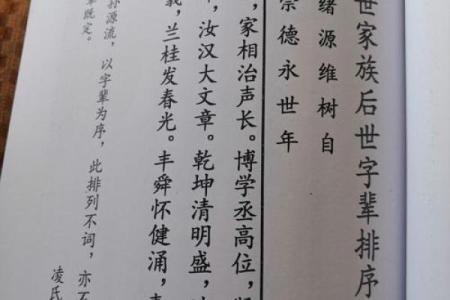 世家族后世字辈排序
绪源维树自
崇德永世年
，家相治声长。博学丞高位，
，汝汉大文章。乾坤清明盛，
，兰桂发春光。丰舜怀健涌，
孙源流，以字辈为序，此排列不词，亦不
辈既定。
凌氏